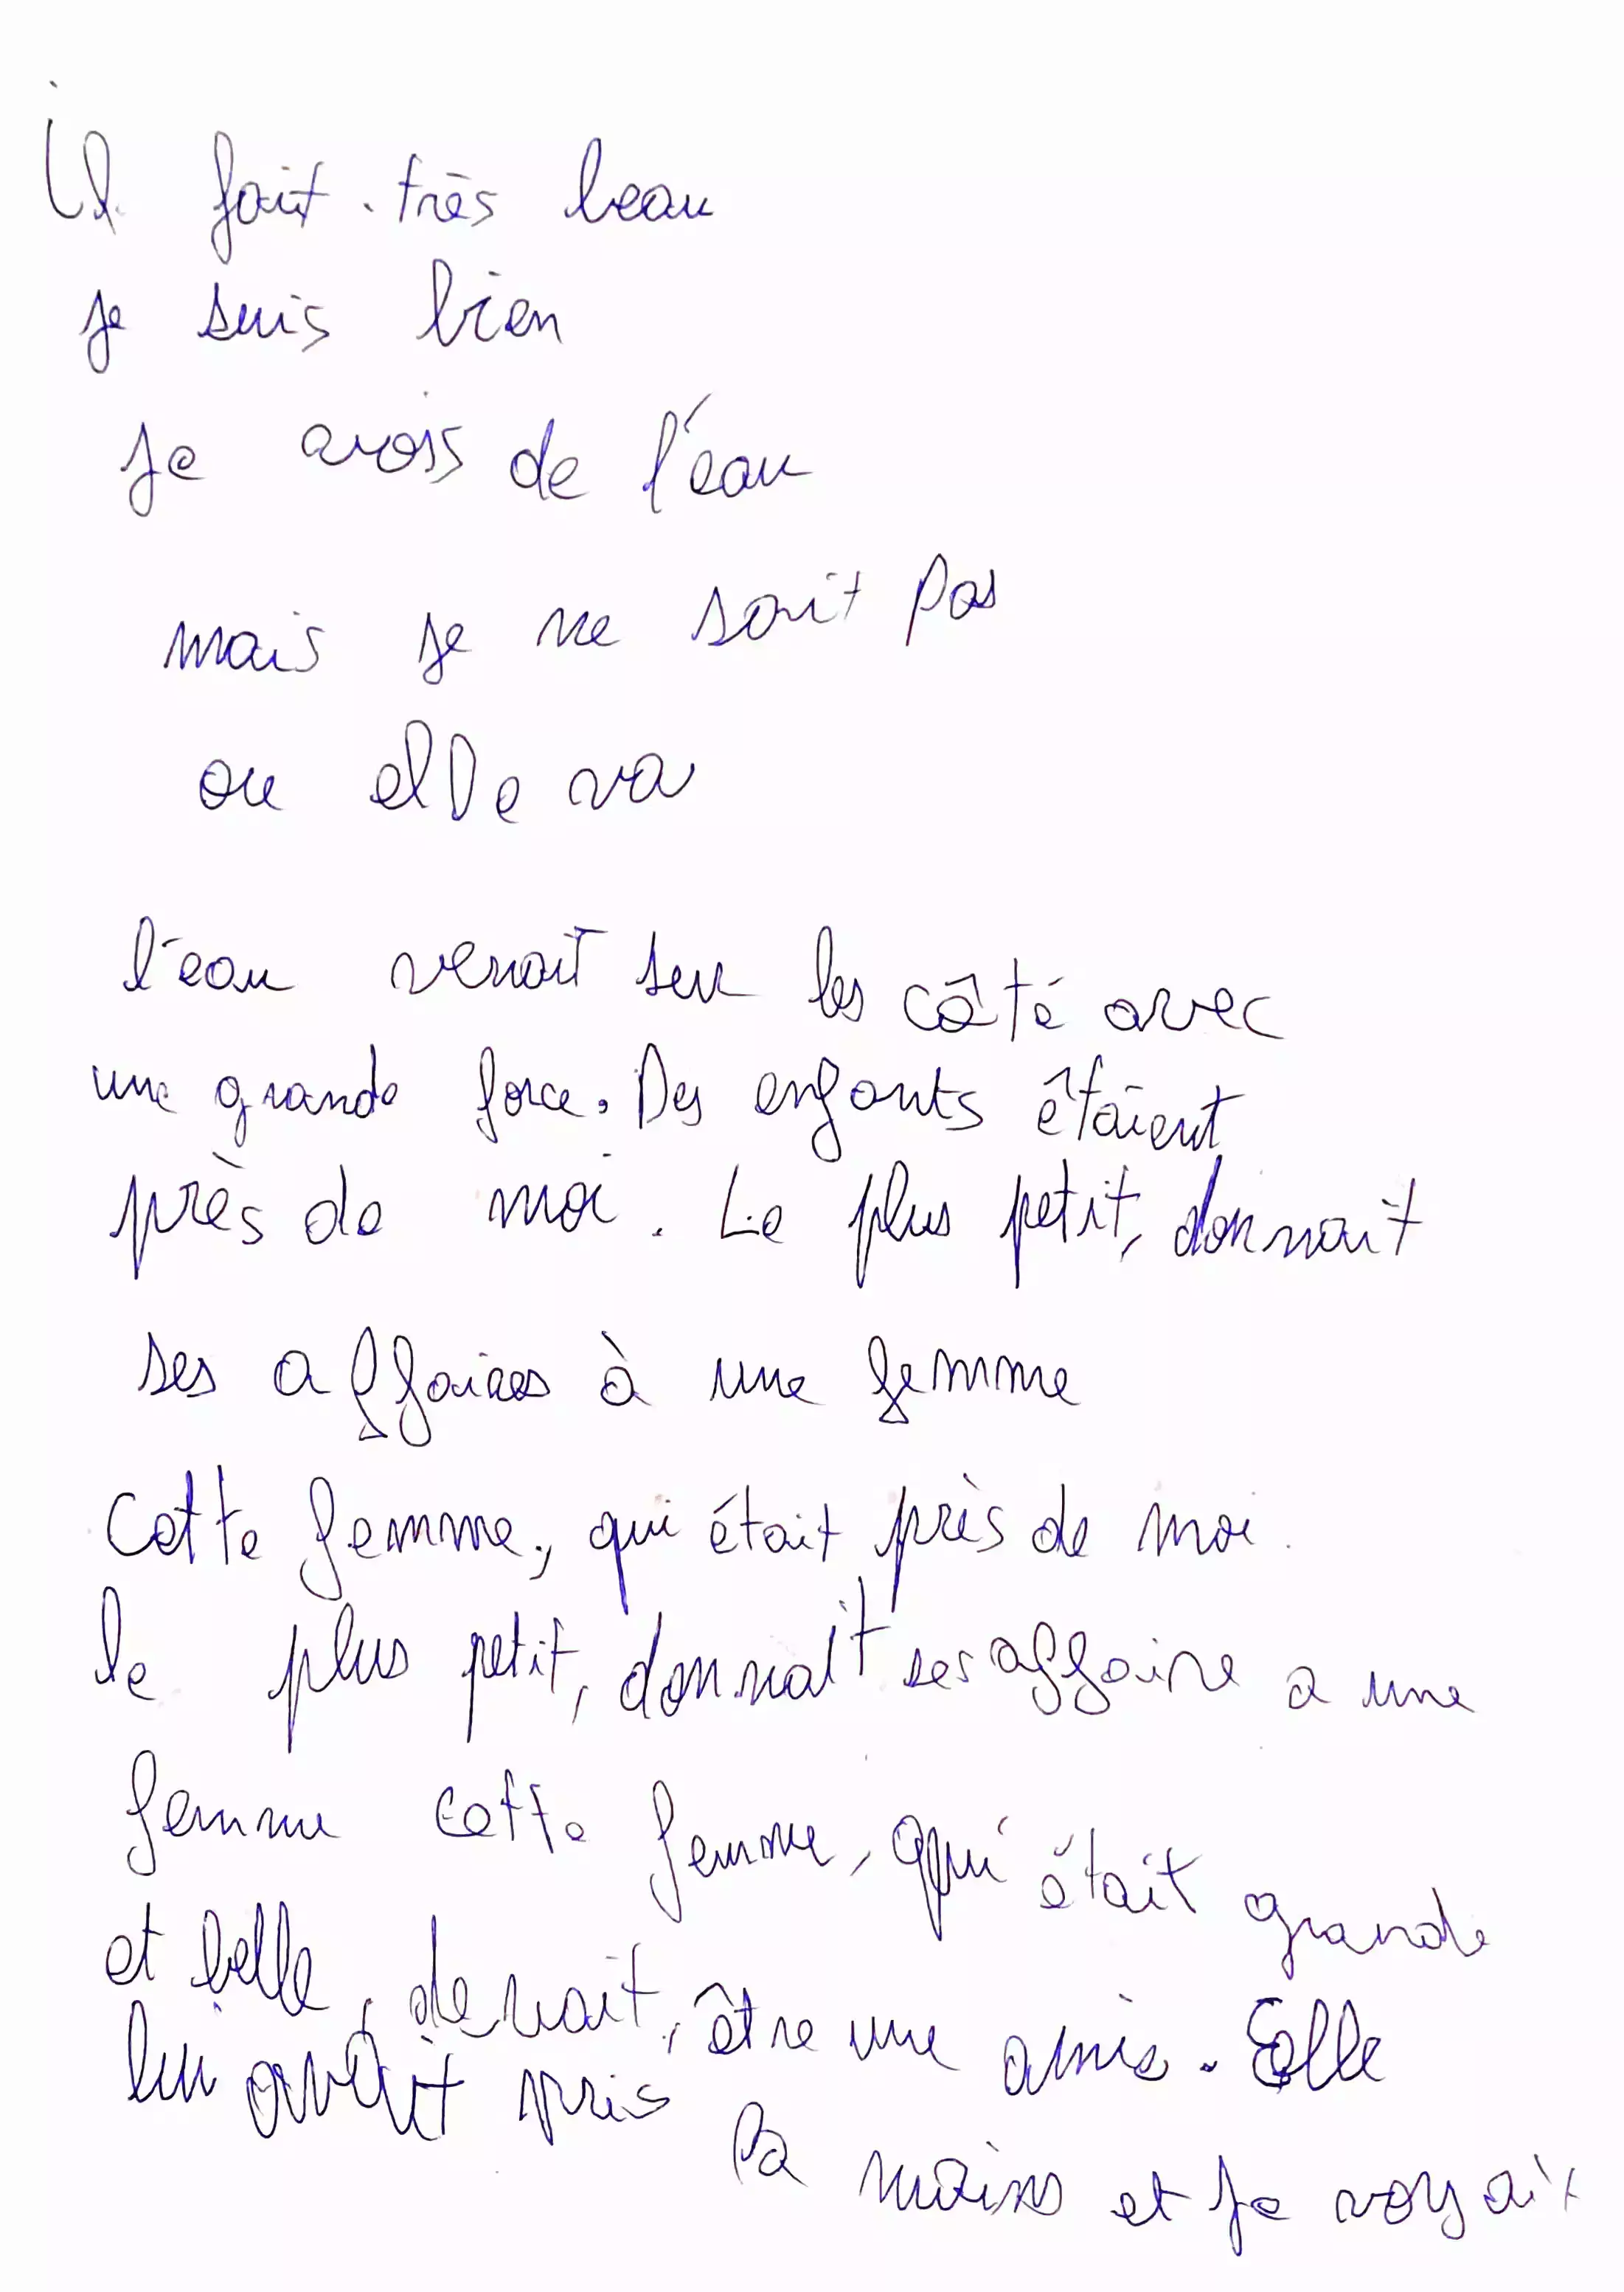 il fait très beau
je suis bien
je avais de l'eau
mais je ne sait pas
ou elle va
l'eau venait sur les côté avec
une grande force. Des enfants étaient
près de moi. Le plus petit, donnait
ses affaires à une femme
Cette femme, qui était près de moi.
le plus petit, donnait ses affaire a une
femme cette femme, qui était grande
et belle, devait, être une amie. Elle
lui avait pris la mains et je voyait